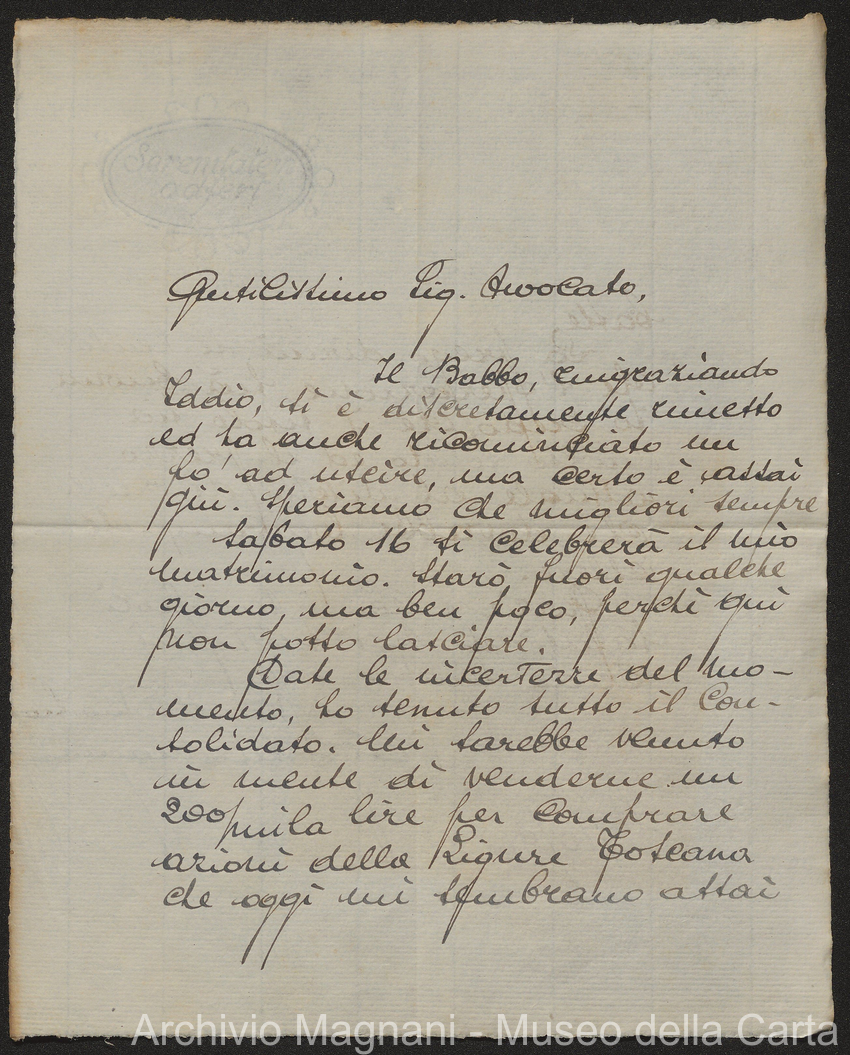 Gentilissimo Sig. Avvocato,
Il Babbo, ringraziando
Iddio, si è discretamente rimesso
ed ha anche ricominciato un
po' ad uscire, ma certo è assai
giù. Speriamo che migliori sempre
Sabato 16 si celebrerà il mio
matrimonio. Starò fuori qualche
giorno, ma ben poco, perchè qui
non posso lasciare.
Date le incertezze del mo-
mento, ho tenuto tutto il Con-
solidato. Mi sarebbe venuto
in mente di venderne un
200 mila lire per comprare
azioni della Ligure Toscana
che oggi mi sembrano assai
Archivio Magnani - Museo della Carta